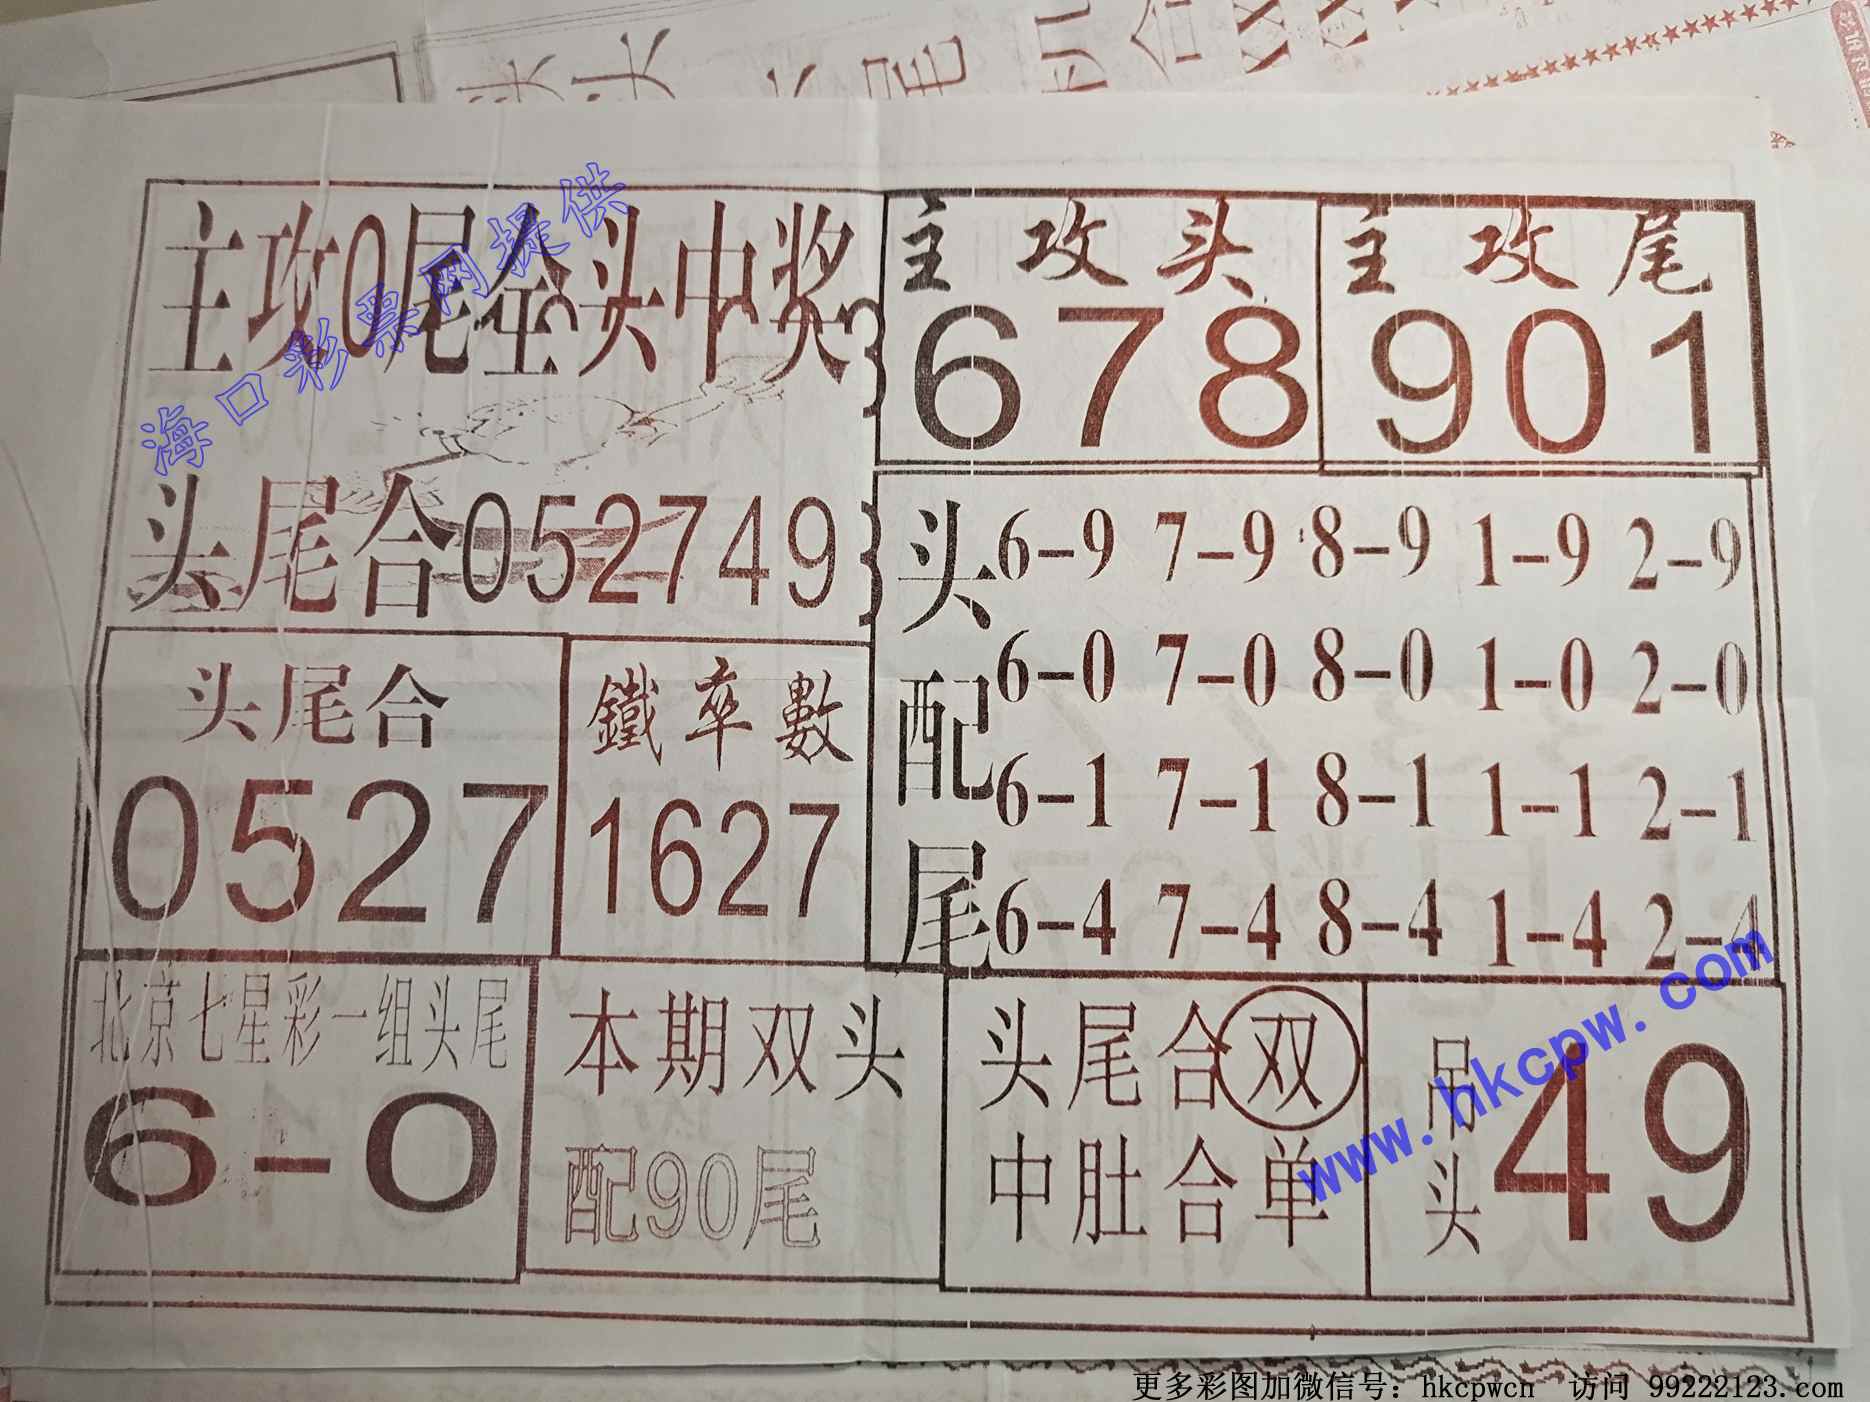 主攻0尾全头中奖
海口彩票网提供
头尾合052749
主攻头
678
主攻尾
901
头配尾
6-9 7-9 8-9 1-9 2-9
6-0 7-0 8-0 1-0 2-0
6-1 7-1 8-1 1-1 2-1
6-4 7-4 8-4 1-4 2-4
头尾合
0527
鐵卒數
1627
北京七星彩一组头尾
6-0
本期双头
配90尾
头尾合双
中肚合单
吊头
49
www.hkcpw.com
更多彩图加微信号：hkcpwcn 访问 99222123.com